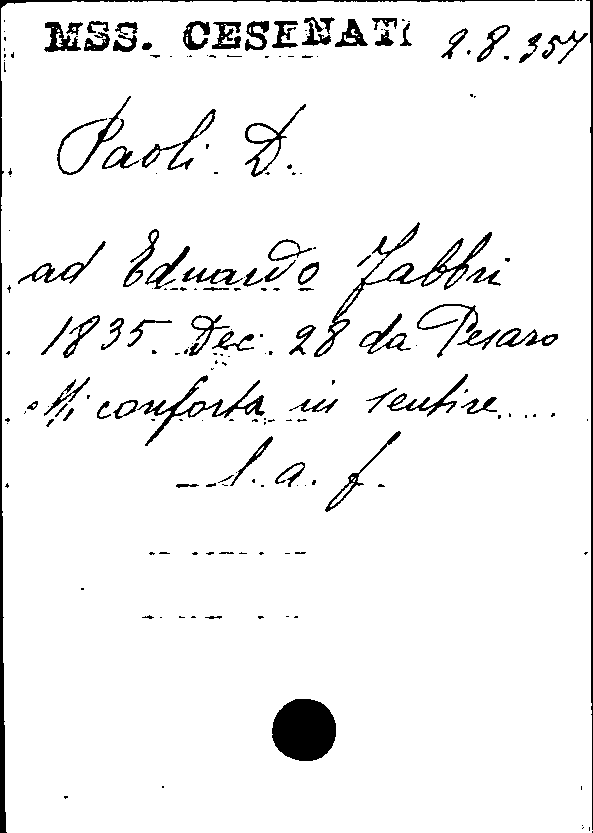 MSS. CESENATI 2.8.357
Paoli D.
ad Eduardo Fabbri
1835. Dec. 28 da Pesaro
Mi conforta in sentire....
l. a. f.